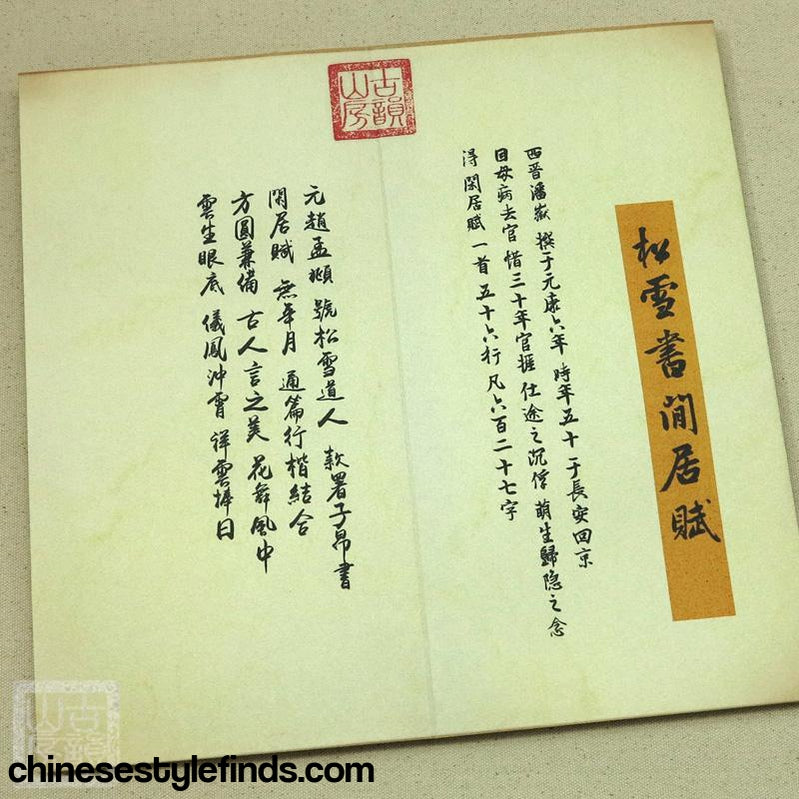 松雪書閒居賦
西晉潘嶽 撰于元康六年 時年五十 于長安回京
因母病去官 惜三十年官捱 仕途之沉俘 萌生歸隐之念
得閑居賦一首 五十六行 凡六百二十七字
古韻山房
元趙孟頫 號松雪道人 款署子昂書
閑居賦 無年月 通篇行楷結合
方圓兼備 古人言之美 花舞風中
雲生眼底 儀鳳沖霄 祥雲捧日
古韻山房
chinesestylefinds.com